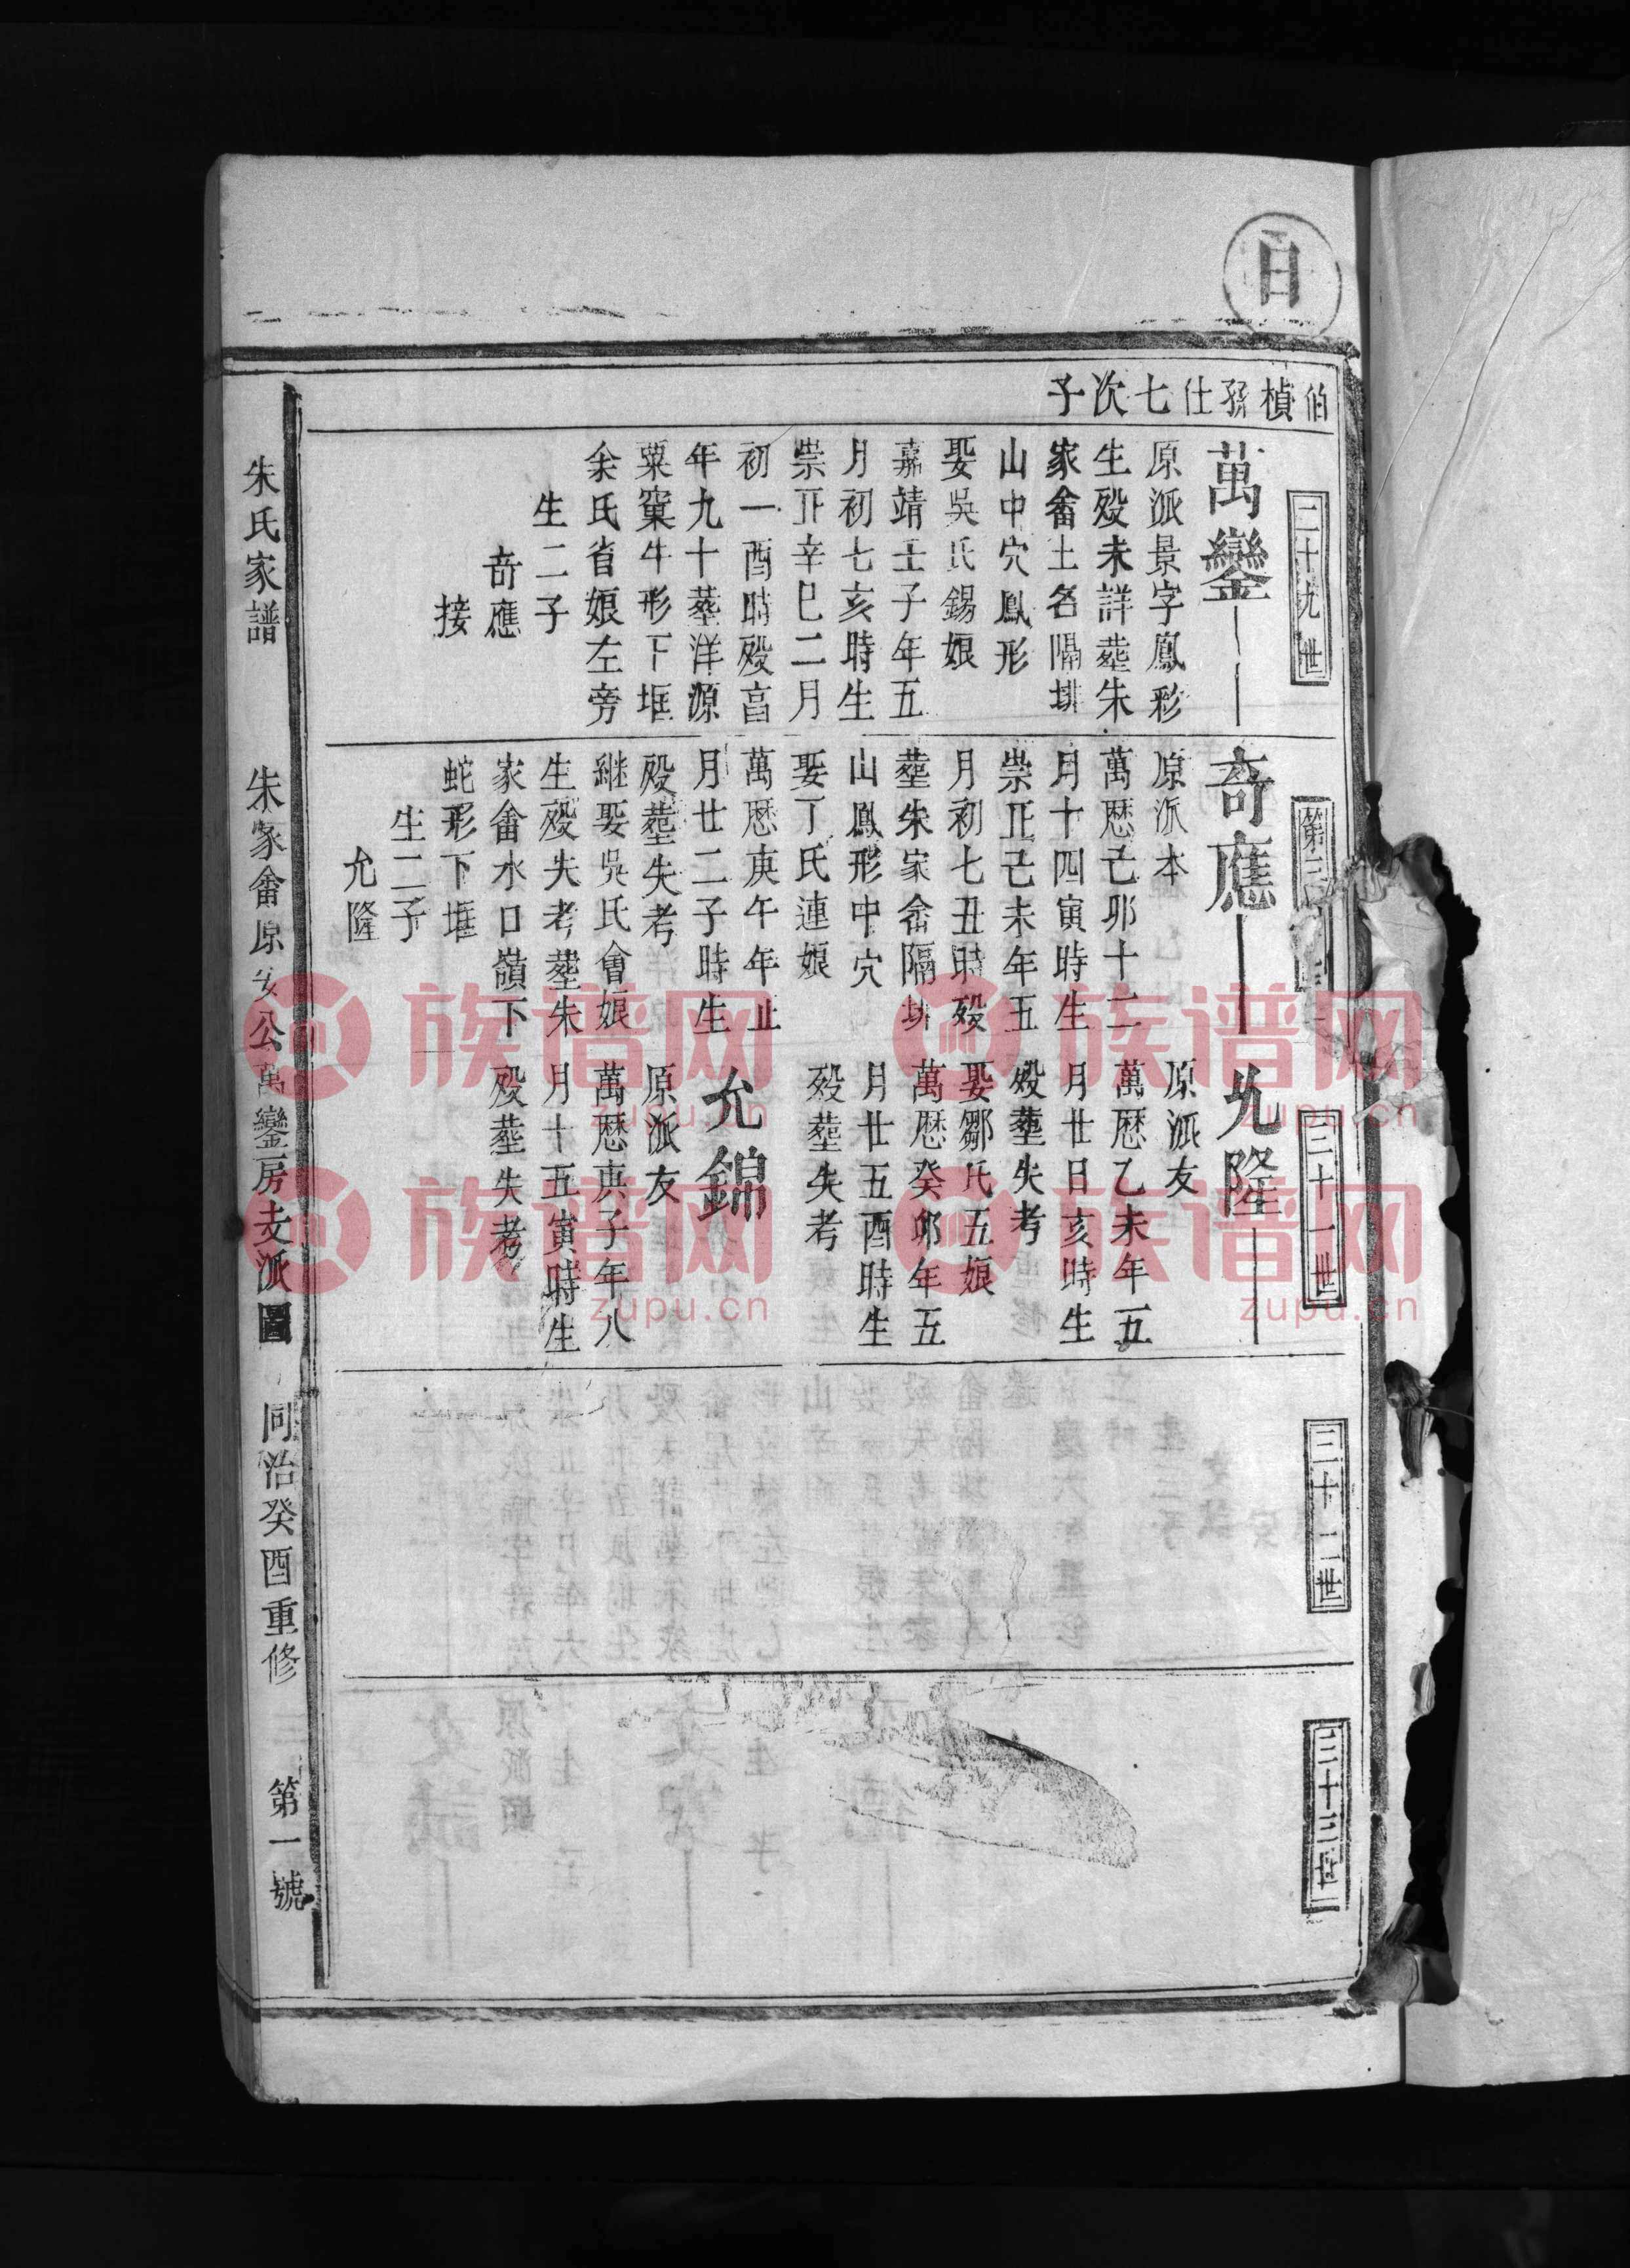 伯楨孫仕七次子
二十九世
萬鑾
原派景字鳳彩
生殁未詳塟朱
家畲土名隔埂
山中穴鳳形
娶吳氏錫娘
嘉靖壬子年五
月初七亥時生
崇正辛巳二月
初一酉時殁享
年九十塟洋源
粟窠牛形下堐
余氏省娘左旁
生二子
奇應
接
第三
奇應
原派本
萬歷己卯十二
月十四寅時生
崇正己未年五
月初七丑時殁
塟朱家畲隔埂
山鳳形中穴
娶丁氏連娘
萬歷庚午年正
月廿二子時生
殁塟失考
継娶吳氏會娘
生殁失考塟朱
家畲水口嶺下
蛇形下堐
生二子
允隆
三十一世
允隆
原派友
萬歷乙未年五
月廿日亥時生
殁塟失考
娶鄒氏五娘
萬歷癸卯年五
月廿五酉時生
殁塟失考
允錦
原派友
萬歷庚子年八
月十五寅時生
殁塟失考
三十二世
三十三世
朱氏家譜
朱家畲原安公萬鑾房支派圖
同治癸酉重修
第一號
族谱网
zupu.cn
族谱网
zupu.cn
族谱网
zupu.cn
族谱网
zupu.cn